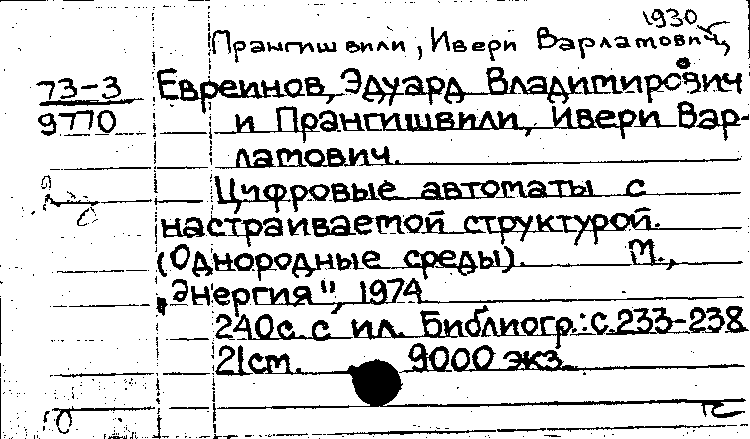 1930
Прангишвили, Ивери Варламович
73-3 Евреинов, Эдуард Владимирович
9770 и Прангишвили, Ивери Вар-
ламович.
Цифровые автоматы с
настраиваемой структурой.
(Однородные среды). М.,
„Энергия", 1974
240с. с ил. Библиогр.: с. 233-238
21cm. 9000 экз.